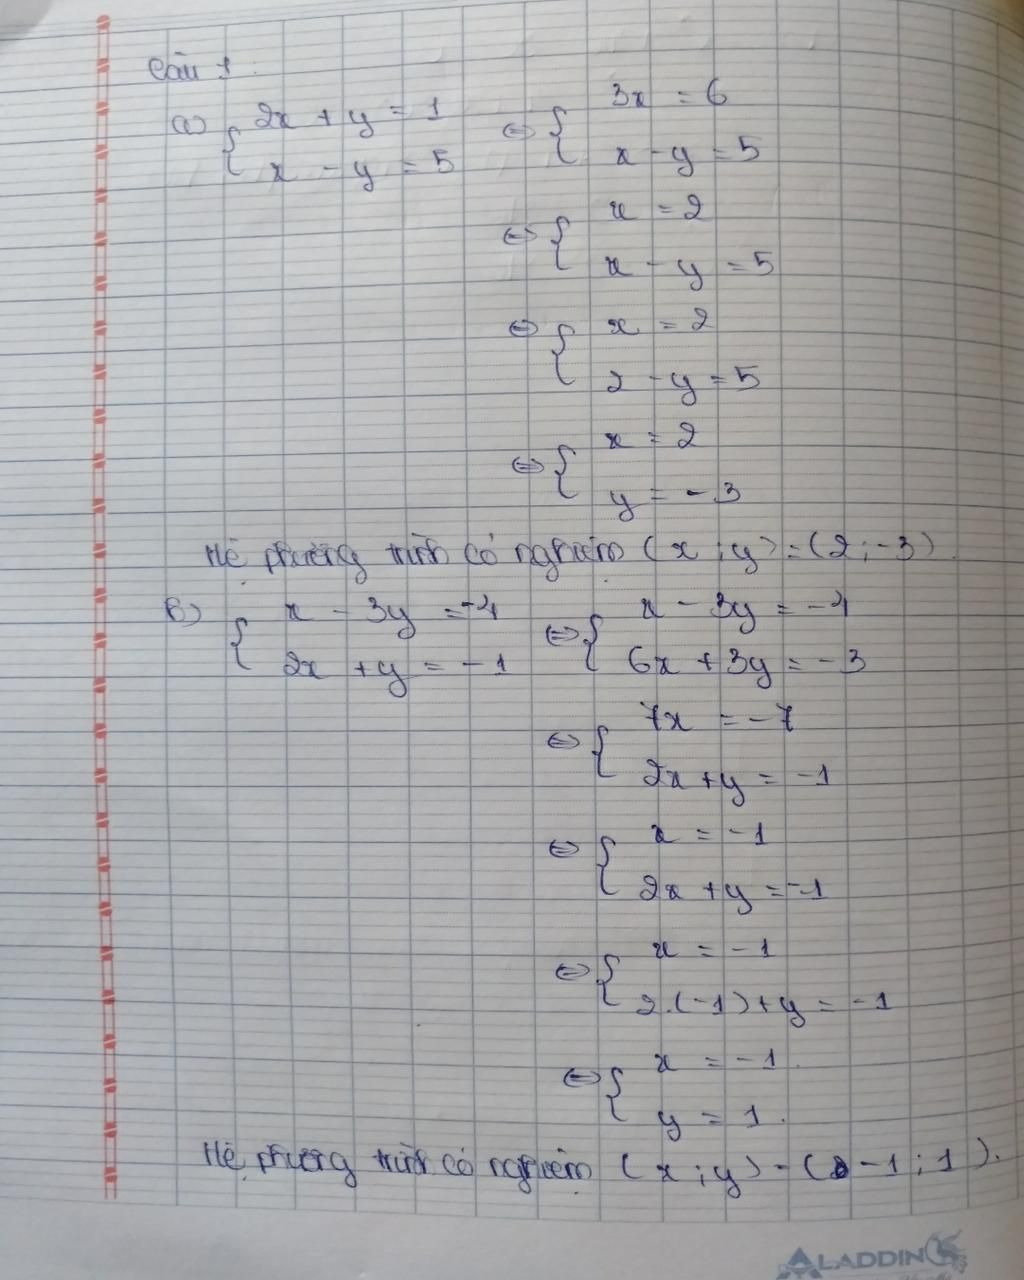 Câu 1:
a) { 2x + y = 1 ⇔ { 3x = 6
x - y = 5 x - y = 5
⇔ { x = 2
x - y = 5
⇔ { x = 2
2 - y = 5
⇔ { x = 2
y = -3
Hệ phương trình có nghiệm (x ; y) = (2 ; -3).
b) { x - 3y = -4 ⇔ { x - 3y = -4
2x + y = -1 6x + 3y = -3
⇔ { 7x = -7
2x + y = -1
⇔ { x = -1
2x + y = -1
⇔ { x = -1
2.(-1) + y = -1
⇔ { x = -1.
y = 1.
Hệ phương trình có nghiệm (x ; y) = (-1 ; 1).
ALADDIN